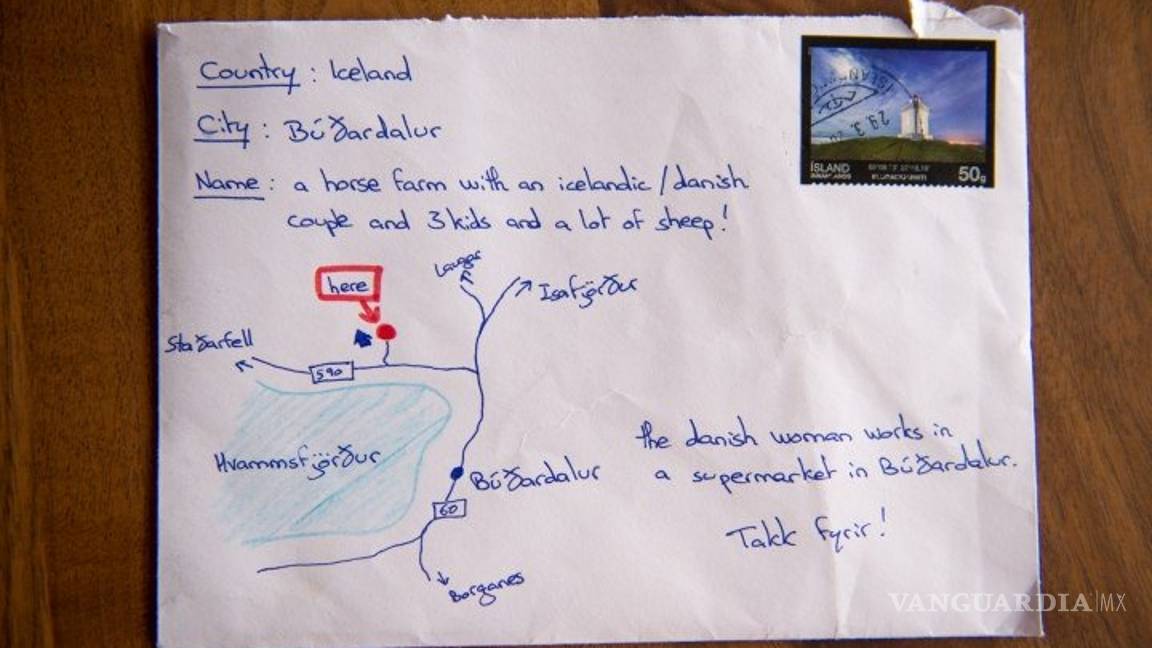 Country : Iceland
City : Búðardalur
Name : a horse farm with an icelandic/danish
couple and 3 kids and a lot of sheep!
ÍSLAND
50g
29.3.
here
Laugar
Isafjörður
Staðarfell
590
Hvammsfjörður
Búðardalur
60
Borganes
the danish woman works in
a supermarket in Búðardalur.
Takk fyrir!
VANGUARDIA|MX